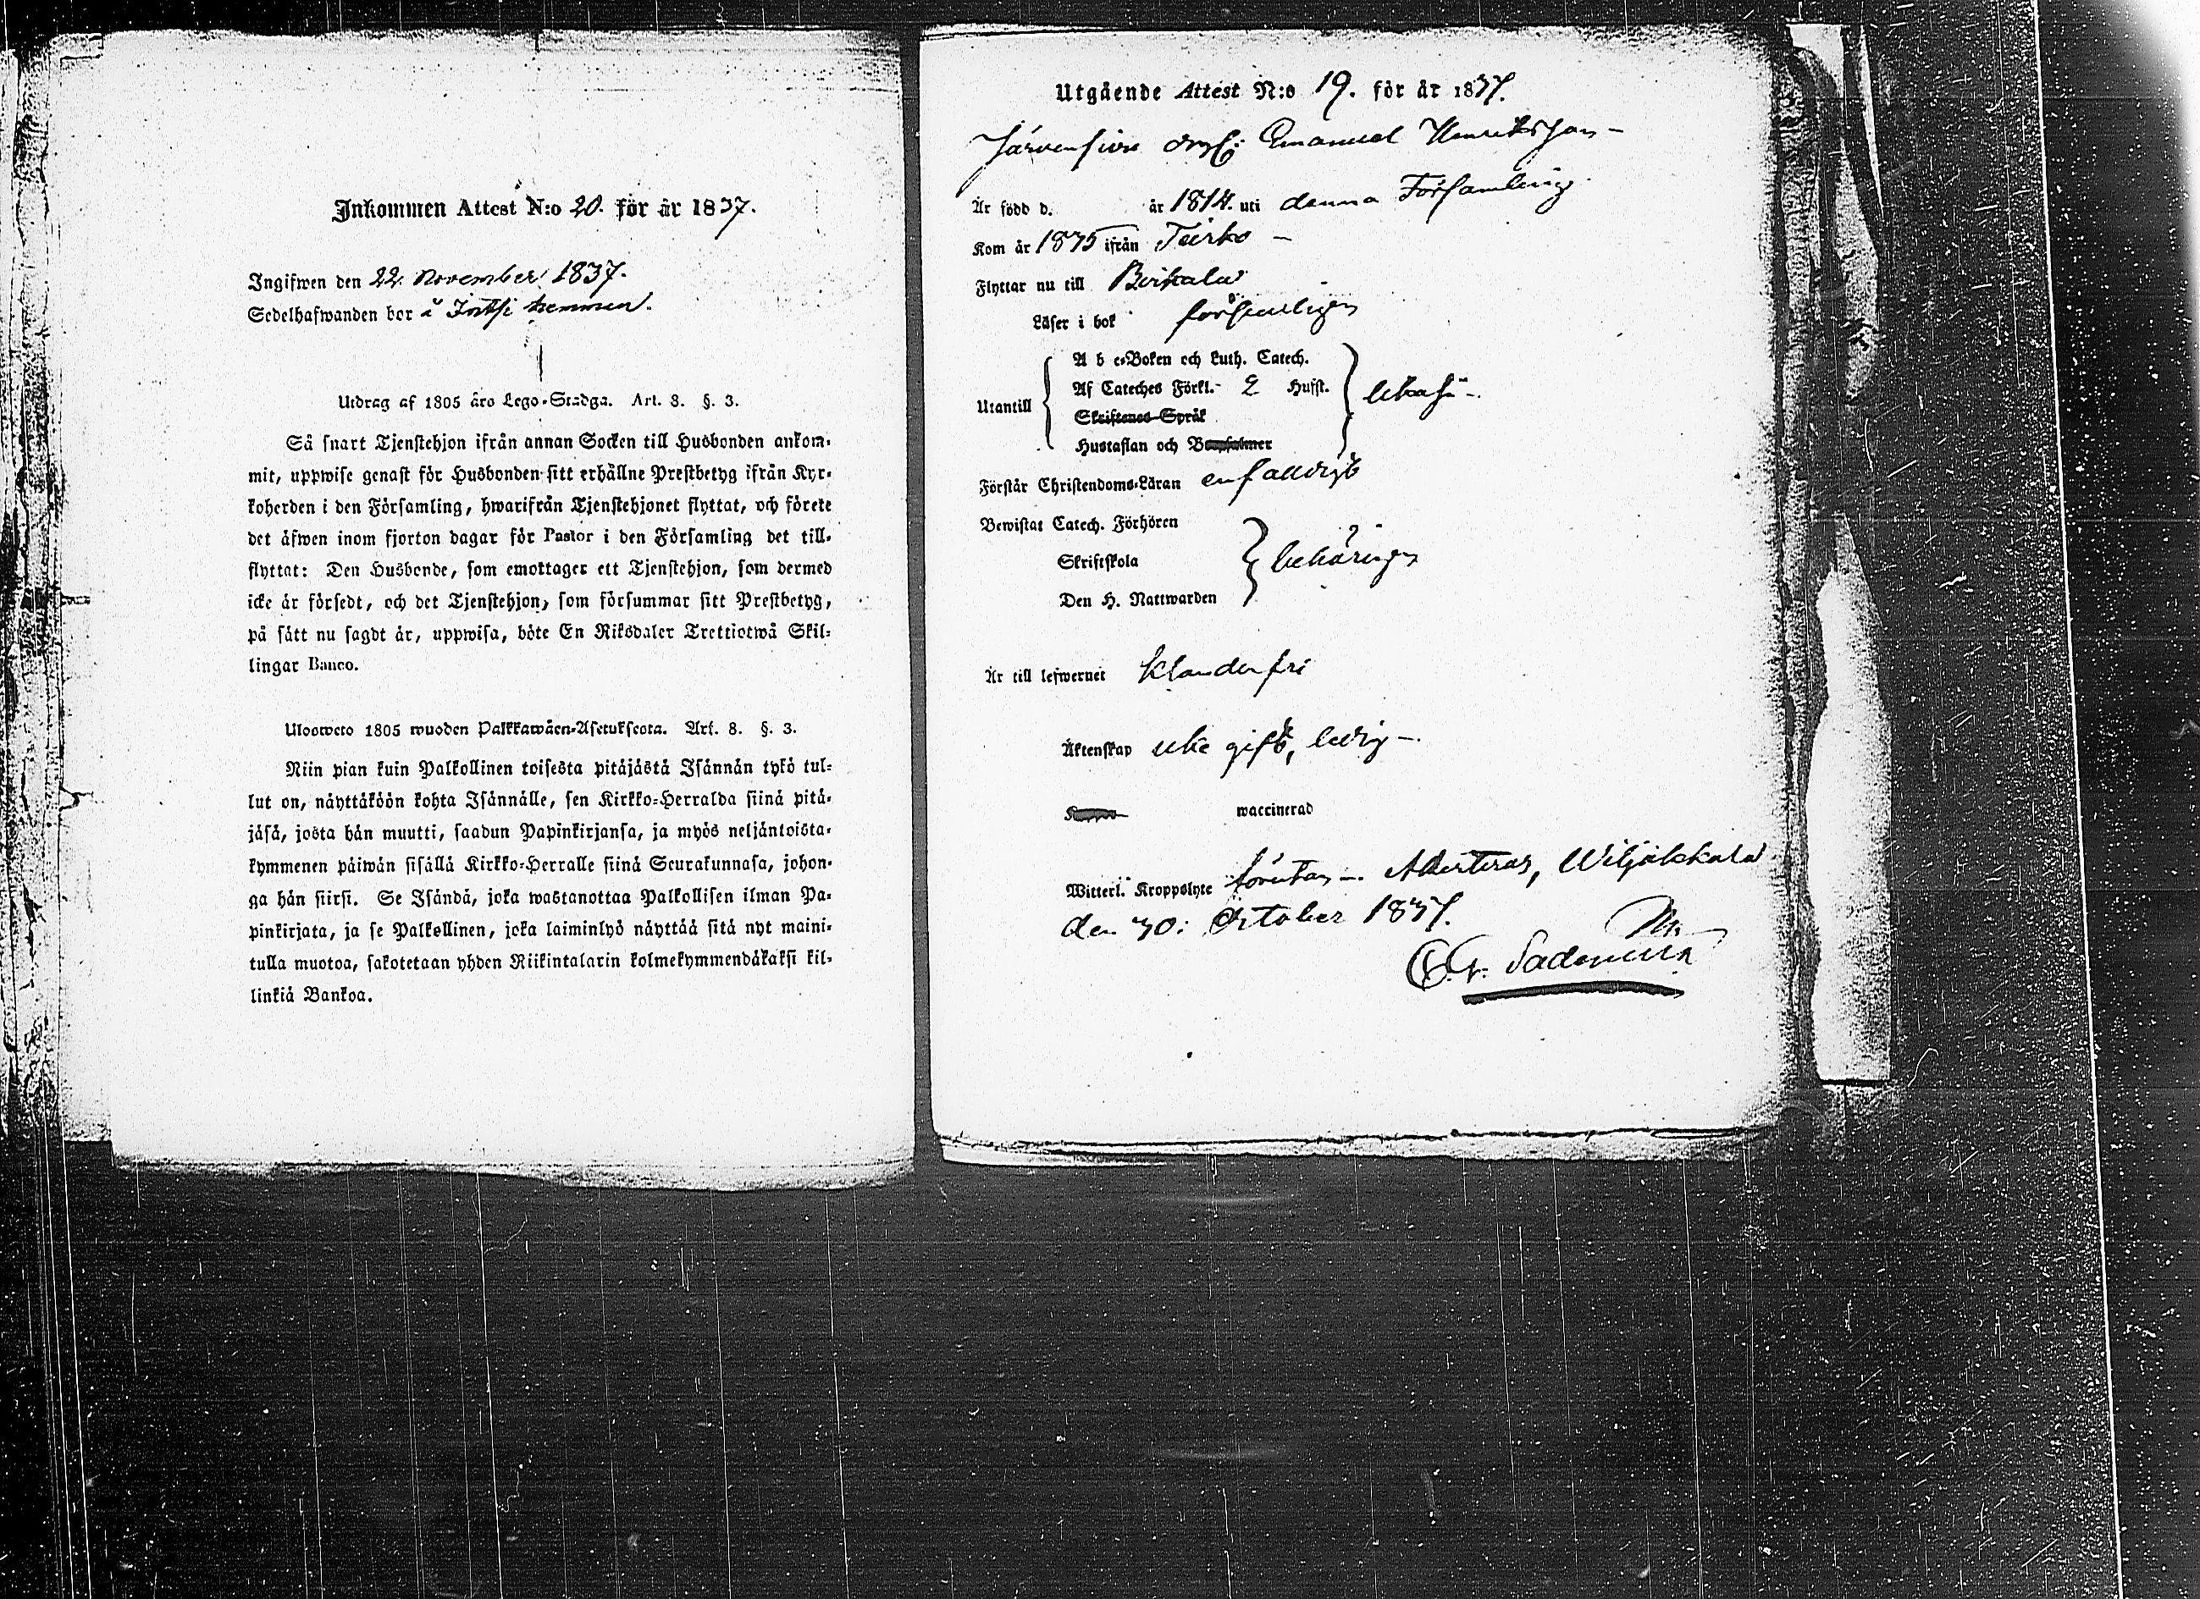 Inkommen Attest N:o 20. för år 1837.
Ingifwen den 22 November 1837.
Sedelhafwanden bor å hemman.
Utdrag af 1805 års Lego-Stadga. Art. 8. §. 3.
Så snart Tjenstehjon ifrån annan Socken till Husbonden ankom-
mit, uppwise genast för Husbonden sitt erhållne Prestbetyg ifrån Kyr-
koherden i den Församling, hwarifrån Tjenstehjonet flyttat, och förete
det äfwen inom fjorton dagar för Pastor i den Församling det till-
flyttat: Den Husbonde, som emottager ett Tjenstehjon, som dermed
icke är försedt, och det Tjenstehjon, som försummar sitt Prestbetyg,
på sätt nu sagdt är, uppwisa, böte En Riksdaler Trettiotwå Skil-
lingar Banco.
Ulosweto 1805 wuoden Palkkawäen-Asetuksesta. Art. 8. §. 3.
Niin pian kuin Palkollinen toisesta pitäjästä Isännän tykö tul-
lut on, näyttäköön kohta Isännälle, sen Kirkko-Herralda siinä pitä-
jäsä, josta hän muutti, saadun Papinkirjansa, ja myös neljäntoista-
kymmenen päiwän sisällä Kirkko-Herralle siinä Seurakunnasa, johon-
ga hän siirsi. Se Isändä, joka wastanottaa Palkollisen ilman Pa-
pinkirjata, ja se Palkollinen, joka laiminlyö näyttää sitä nyt maini-
tulla muotoa, sakotetaan yhden Riikintalarin kolmekymmendäkaksi kil-
linkiä Bankoa.
Utgående Attest N:o 19. för år 1837.
Järvensivu drgn: Emanuel Henriksson -
Är född d. år 1814. uti denna Församling
Kom år 1835 ifrån -
Flyttar nu till Birkala
Läser i bok försvarligen
A b c-Boken och Luth. Catech.
Af Cateches Förkl. 2 Hufst.
Utantill likaså -
Skriftenes Språk
Hustaflan och
Förstår Christendoms-Läran enfaldigt
Bewistat Catech. Förhören
Skriftskola behörigen
Den H. Nattwarden
Är till lefwernet klanderfri
Äktenskap icke gift, ledig -
waccinerad
Witterl. Kroppslyte förutan - Attesteras, Wiljakkala
den 30: October 1837.